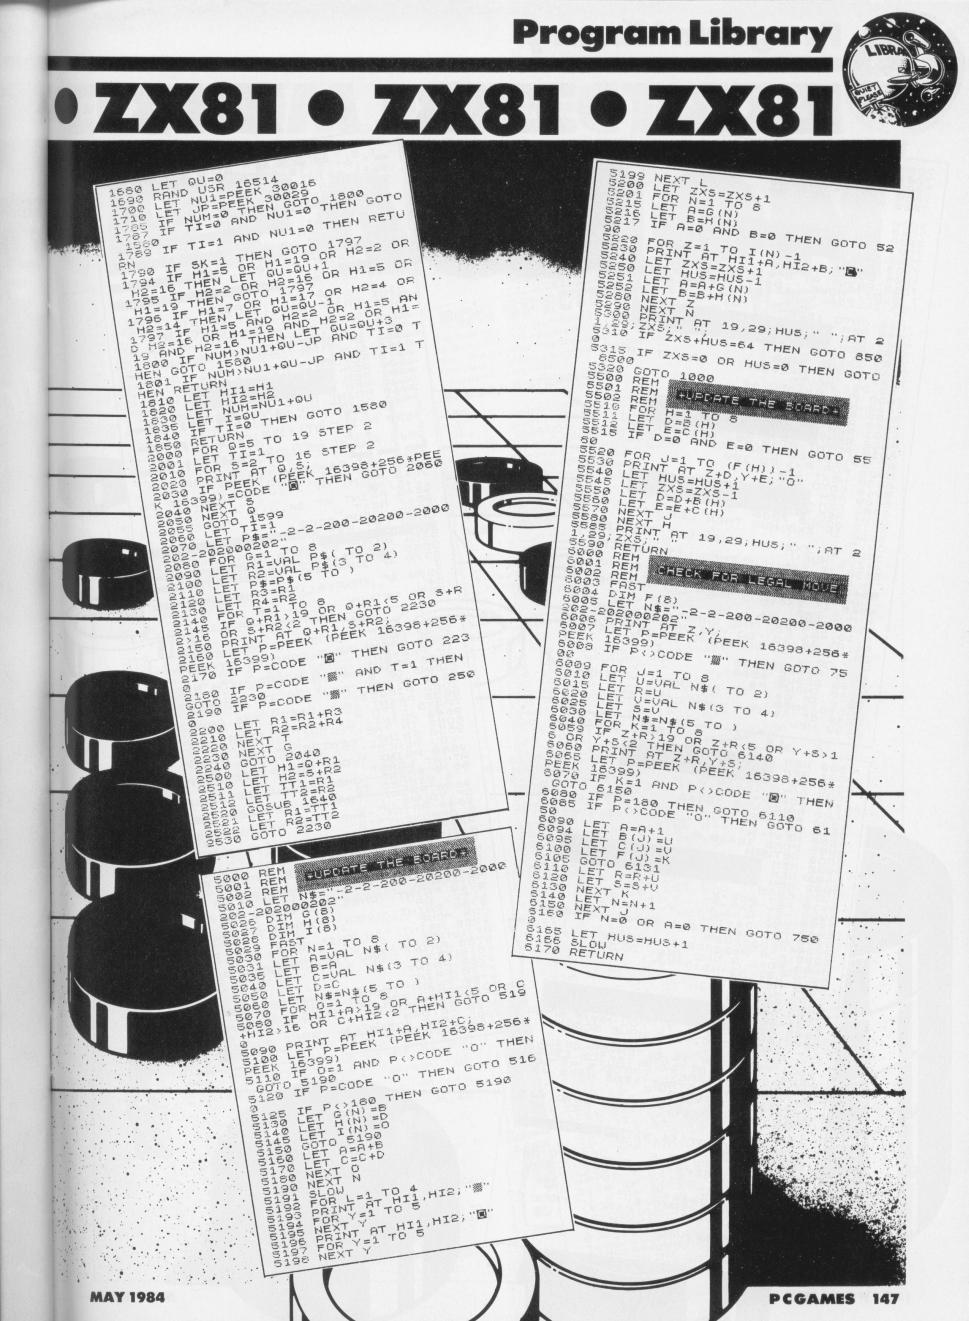 Program Library
LIBRA
QUIET PLEASE
ZX81 ● ZX81 ● ZX81
1680 LET QU=0
1690 RAND USR 16514
1700 LET NU1=PEEK 30016
1710 LET UP=PEEK 30029
1785 IF NUM=0 THEN GOTO 1800
1787 IF TI=0 AND NU1=0 THEN GOTO
1580
1789 IF TI=1 AND NU1=0 THEN RETU
RN
1790 IF SK=1 THEN GOTO 1797
1794 IF H1=5 OR H1=19 OR H2=2 OR
H2=16 THEN LET QU=QU+1
1795 IF H2=2 OR H2=16 OR H1=5 OR
H1=19 THEN GOTO 1797
1796 IF H1=7 OR H1=17 OR H2=4 OR
H2=14 THEN LET QU=QU-1
1797 IF H1=5 AND H2=2 OR H1=5 AN
D H2=16 OR H1=19 AND H2=2 OR H1=
19 AND H2=16 THEN LET QU=QU+3
1800 IF NUM>NU1+QU-UP AND TI=0 T
HEN GOTO 1580
1801 IF NUM>NU1+QU-UP AND TI=1 T
HEN RETURN
1810 LET HI1=H1
1820 LET HI2=H2
1830 LET NUM=NU1+QU
1835 LET I=QU
1840 IF TI=0 THEN GOTO 1580
1850 RETURN
2000 FOR Q=5 TO 19 STEP 2
2001 LET TI=1
2010 FOR S=2 TO 16 STEP 2
2020 PRINT AT Q,S;
2030 IF PEEK (PEEK 16398+256*PEE
K 16399)=CODE "◙" THEN GOTO 2060
2040 NEXT S
2050 NEXT Q
2055 GOTO 1599
2060 LET TI=1
2070 LET P$="-2-2-200-20200-2000
202-202000202"
2080 FOR G=1 TO 8
2090 LET R1=VAL P$( TO 2)
2100 LET R2=VAL P$(3 TO 4)
2110 LET P$=P$(5 TO )
2120 LET R3=R1
2130 LET R4=R2
2140 FOR T=1 TO 8
2145 IF Q+R1>19 OR Q+R1<5 OR S+R
2>16 OR S+R2<2 THEN GOTO 2230
2150 PRINT AT Q+R1,S+R2;
2160 LET P=PEEK (PEEK 16398+256*
PEEK 16399)
2170 IF P=CODE "◙" THEN GOTO 223
0
2180 IF P=CODE "▒" AND T=1 THEN
GOTO 2230
2190 IF P=CODE "▒" THEN GOTO 250
0
2200 LET R1=R1+R3
2210 LET R2=R2+R4
2220 NEXT T
2230 NEXT G
2240 GOTO 2040
2500 LET H1=Q+R1
2510 LET H2=S+R2
2511 LET TT1=R1
2512 LET TT2=R2
2520 GOSUB 1640
2521 LET R1=TT1
2522 LET R2=TT2
2530 GOTO 2230
5000 REM
5001 REM *UPDATE THE BOARD*
5002 REM
5010 LET N$="-2-2-200-20200-2000
202-202000202"
5026 DIM G(8)
5027 DIM H(8)
5028 DIM I(8)
5029 FAST
5030 FOR N=1 TO 8
5031 LET A=VAL N$( TO 2)
5035 LET B=A
5040 LET C=VAL N$(3 TO 4)
5045 LET D=C
5050 LET N$=N$(5 TO )
5060 FOR O=1 TO 8
5070 IF HI1+A>19 OR A+HI1<5 OR C
+HI2>16 OR C+HI2<2 THEN GOTO 519
0
5090 PRINT AT HI1+A,HI2+C;
5100 LET P=PEEK (PEEK 16398+256*
PEEK 16399)
5110 IF O=1 AND P<>CODE "O" THEN
GOTO 5190
5120 IF P=CODE "O" THEN GOTO 516
0
5125 IF P<>180 THEN GOTO 5190
5130 LET G(N)=B
5140 LET H(N)=D
5145 LET I(N)=O
5150 GOTO 5190
5160 LET A=A+B
5170 LET C=C+D
5180 NEXT O
5190 NEXT N
5191 SLOW
5192 FOR L=1 TO 4
5193 PRINT AT HI1,HI2;"▒"
5194 FOR Y=1 TO 5
5195 NEXT Y
5196 PRINT AT HI1,HI2;"◙"
5197 FOR Y=1 TO 5
5198 NEXT Y
5199 NEXT L
5200 LET ZXS=ZXS+1
5201 FOR N=1 TO 8
5215 LET A=G(N)
5216 LET B=H(N)
5217 IF A=0 AND B=0 THEN GOTO 52
90
5220 FOR Z=1 TO I(N)-1
5230 PRINT AT HI1+A,HI2+B;"◙"
5240 LET ZXS=ZXS+1
5250 LET HUS=HUS-1
5251 LET A=A+G(N)
5252 LET B=B+H(N)
5280 NEXT Z
5290 NEXT N
5300 PRINT AT 19,29;HUS;" ";AT 2
1,29;ZXS;" ";
5310 IF ZXS+HUS=64 THEN GOTO 850
0
5315 IF ZXS=0 OR HUS=0 THEN GOTO
8500
5320 GOTO 1000
5500 REM
5501 REM *UPDATE THE BOARD*
5502 REM
5510 FOR H=1 TO 8
5511 LET D=B(H)
5512 LET E=C(H)
5515 IF D=0 AND E=0 THEN GOTO 55
80
5520 FOR J=1 TO (F(H))-1
5530 PRINT AT Z+D,Y+E;"O"
5540 LET HUS=HUS+1
5545 LET ZXS=ZXS-1
5550 LET D=D+B(H)
5560 LET E=E+C(H)
5570 NEXT J
5580 NEXT H
5585 PRINT AT 19,29;HUS;" ";AT 2
1,29;ZXS;" "
5590 RETURN
6000 REM
6001 REM CHECK FOR LEGAL MOVE
6002 REM
6003 FAST
6004 DIM F(8)
6005 LET N$="-2-2-200-20200-2000
202-202000202"
6006 PRINT AT Z,Y;
6007 LET P=PEEK (PEEK 16398+256*
PEEK 16399)
6008 IF P<>CODE "▒" THEN GOTO 75
00
6009 FOR J=1 TO 8
6010 LET U=VAL N$( TO 2)
6015 LET R=U
6020 LET V=VAL N$(3 TO 4)
6025 LET S=V
6030 LET N$=N$(5 TO )
6040 FOR K=1 TO 8
6059 IF Z+R>19 OR Z+R<5 OR Y+S>1
6 OR Y+S<2 THEN GOTO 6140
6060 PRINT AT Z+R,Y+S;
6065 LET P=PEEK (PEEK 16398+256*
PEEK 16399)
6070 IF K=1 AND P<>CODE "◙" THEN
GOTO 6150
6080 IF P=180 THEN GOTO 6110
6085 IF P<>CODE "O" THEN GOTO 61
50
6090 LET A=A+1
6094 LET B(J)=U
6095 LET C(J)=V
6100 LET F(J)=K
6105 GOTO 6131
6110 LET R=R+U
6120 LET S=S+V
6130 NEXT K
6140 LET N=N+1
6150 NEXT J
6160 IF N=0 OR A=0 THEN GOTO 750
0
6165 LET HUS=HUS+1
6166 SLOW
6170 RETURN
MAY 1984
PCGAMES 147